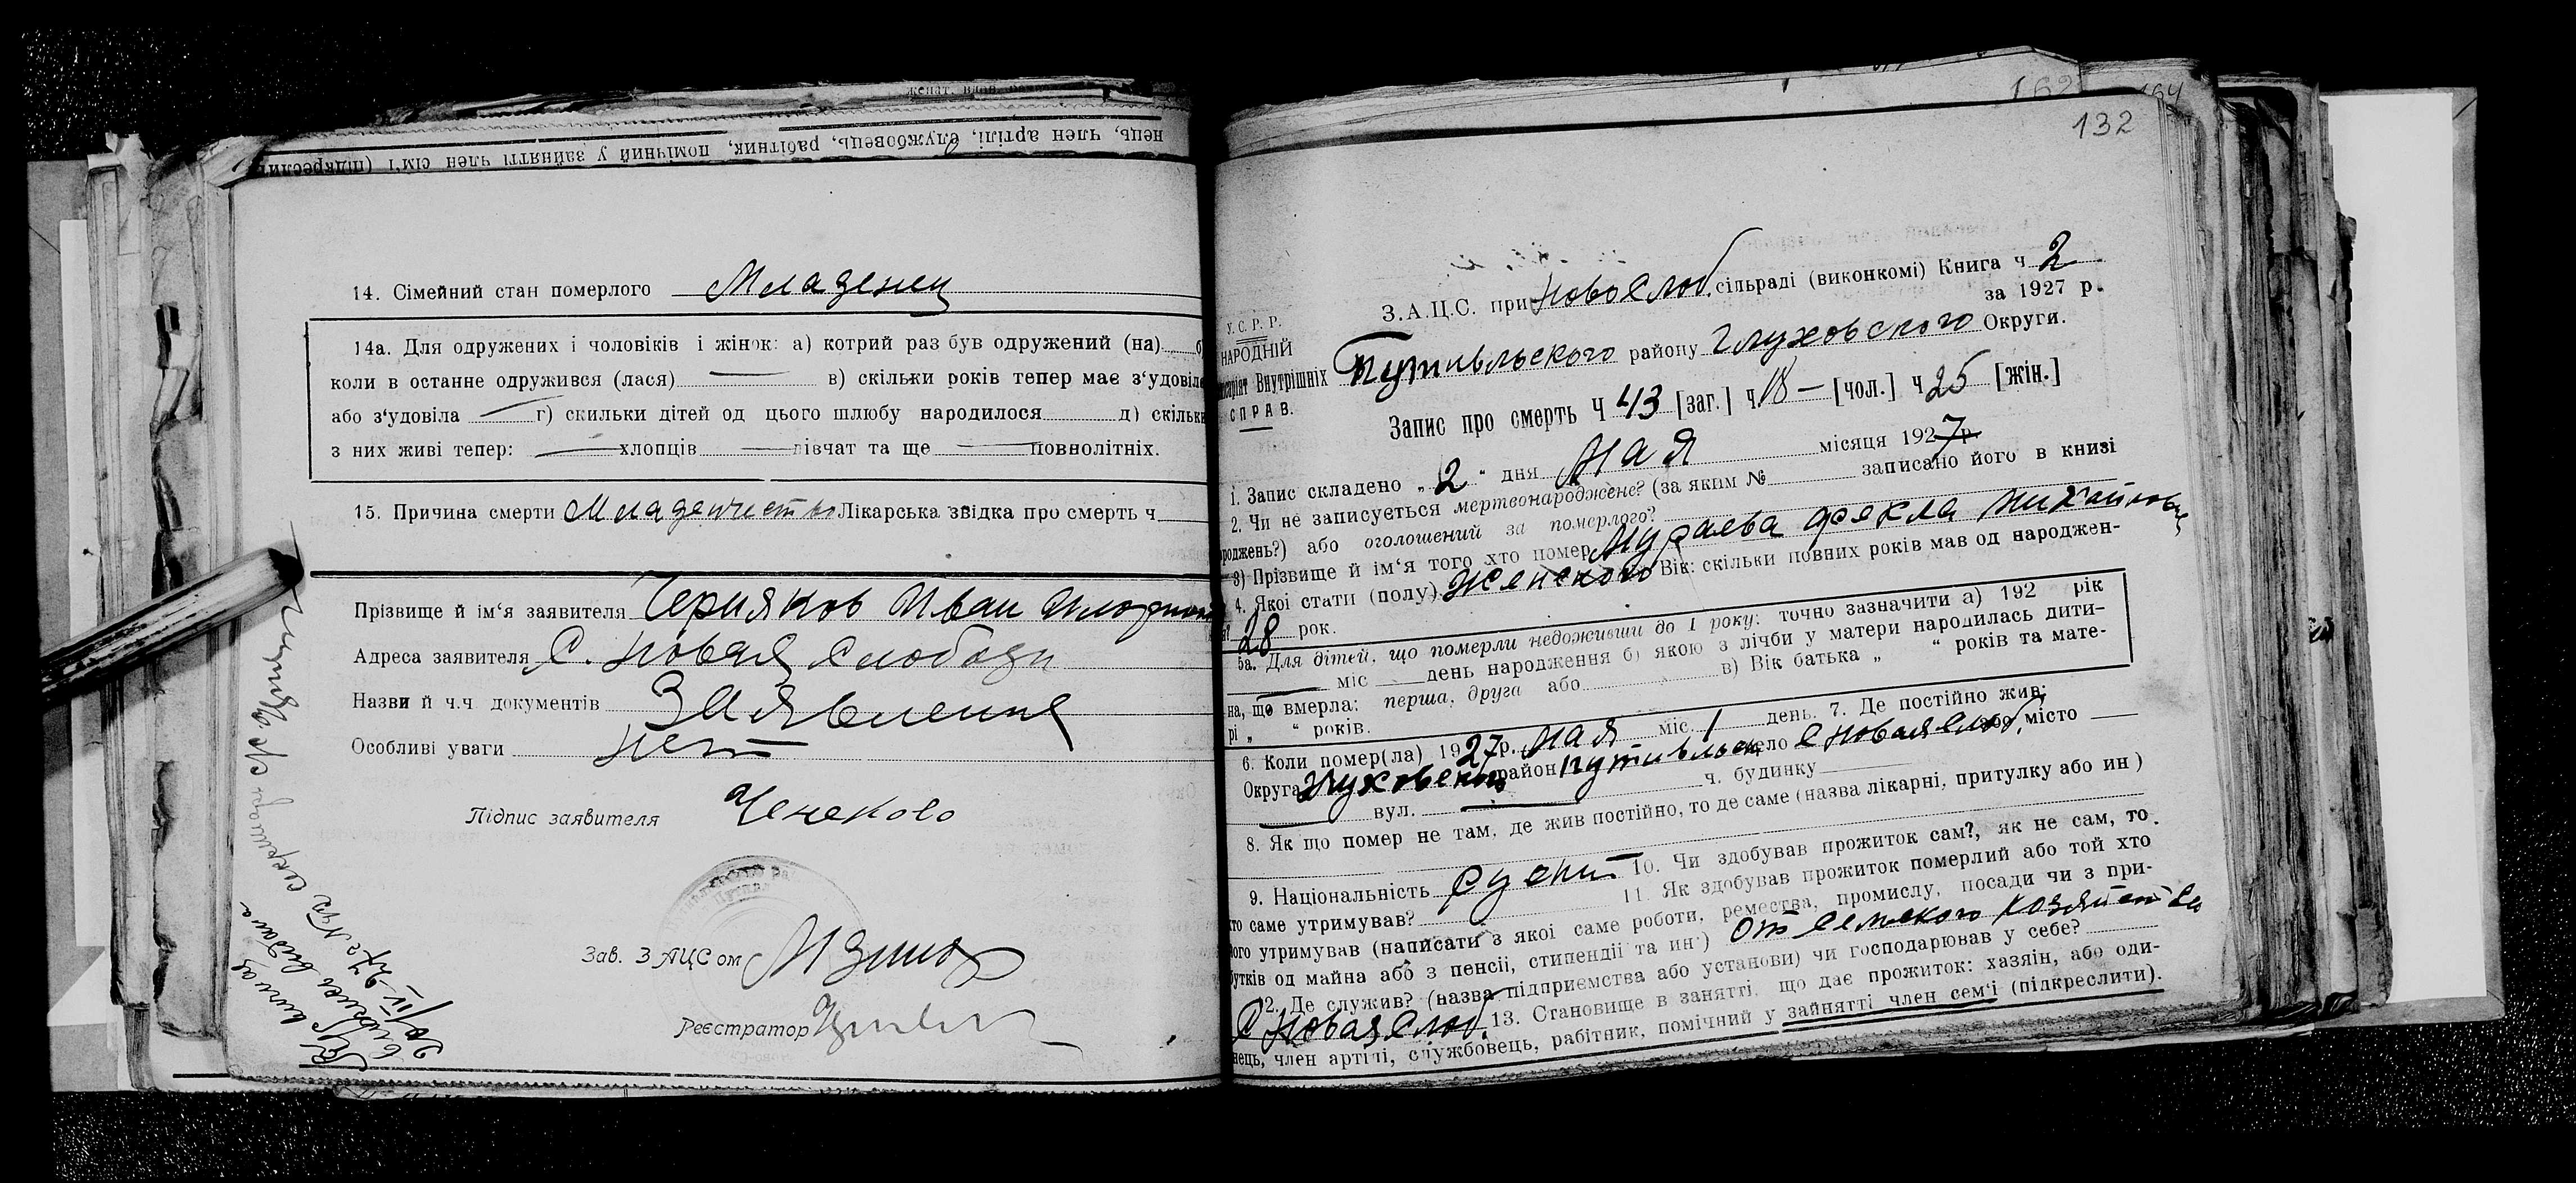 женат, вдів.
нець, член артілі, службовець, рабітник, помічний у зайнятті член сім'ї (підкреслити
14. Сімейний стан померлого Младенец
14а. Для одружених і чоловіків і жінок: а) котрий раз був одружений (на) б
коли в останне одружився (лася) — в) скільки років тепер має з'удовіл
або з'удовіла — г) скильки дітей од цього шлюбу народилося д) скільки
з них живі тепер: — хлопців — дівчат та ще — повнолітніх.
15. Причина смерти Младенчество Лікарська звідка про смерть ч
Прізвище й ім'я заявителя Черняков Иван
Адреса заявителя С. Новая Слобода
Назви й ч.ч документів Заявление
Особливі уваги нет
Підпис заявителя
Зав. ЗАЦСом
Реєстратор
162
164
132
У.С.Р.Р.
НАРОДНІЙ
Внутрішніх
СПРАВ.
З.А.Ц.С. при Новослоб. сільраді (виконкомі) Книга ч 2
за 1927 р.
Путивльского району Глуховского Округи.
Запис про смерть Ч 43 [заг.] ч 18 — [чол.] ч 25 [жін.]
1. Запис складено „2“ дня Мая місяця 1927 р.
2. Чи не записується мертвонароджене? (за яким № записано його в книзі
роджень?) або оголошений за померлого?
3) Прізвище й ім'я того хто помер Мураева Фекла Михайловна
4. Якої стати (полу) Женского Вік: скільки повних років мав од народжен-
28 рок.
5а. Для дітей, що померли недоживши до 1 року: точно зазначити а) 192 рік
міс день народження б) якою з лічби у матери народилась дити-
на, що вмерла: перша, друга або в) Вік батька „ “ років та мате-
рі „ “ років.
6. Коли помер(ла) 1927 р. Мая міс 1 день. 7. Де постійно жив:
Округа Глуховский район Путивльск село С Новая Слоб. або місто —
вул. — ч. будинку
8. Як що помер не там, де жив постійно, то де саме (назва лікарні, притулку або ин)
9. Національність 10. Чи здобував прожиток сам?, як не сам, то
хто саме утримував? 11. Як здобував прожиток померлий або той хто
його утримував (написати з якої саме роботи, ремества, промислу, посади чи з при-
бутків од майна або з пенсії, стипендії та ин.) От сельского хозяйства
12. Де служив? (назва підприємства або установи) чи господарював у себе?
С Новая Слоб. 13. Становище в занятті, що дає прожиток: хазяін, або оди-
нець, член артілі, службовець, рабітник, помічний у зайнятті член сем'ї (підкреслити).